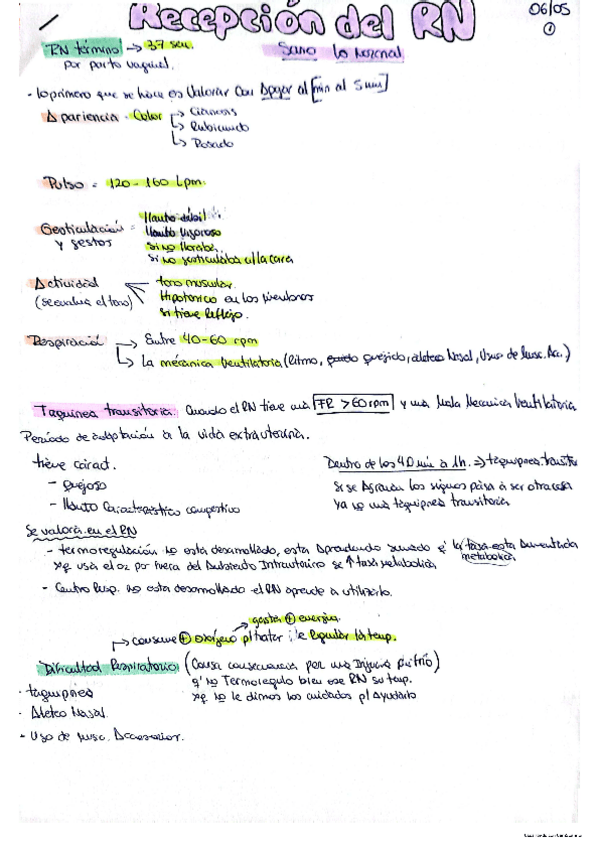 Recepción del RN
06/05
①
RN término → 37 sem.
por parto vaginal.
Sano lo normal
- lo primero que se hace es Valorar con Apgar al [min al 5 min]
Apariencia - Color → Cianosis
↳ Rubicundo
↳ Rosado
Pulso = 120 - 160 Lpm.
Gesticulación = llanto débil
y gestos llanto vigoroso
si no lloraba
si no gesticulaba c/ la cara
Actividad tono muscular
(se evalua el tono) Hipotonico en los miembros
si tiene Reflejo.
Respiració → Entre 40-60 rpm
↳ La mecánica Ventilatoria (Ritmo, quejido, aleteo Nasal, Uso de Musc. Ac.)
Taquinea transitoria: Cuando el RN tiene una FR > 60 rpm y una Mala Mecanica Ventilatoria
Período de adaptación a la vida extrauterina.
tiene caract. Dentro de los 40 min a 1h. ⇒ taquipnea. transit
- quejoso Si se Agravan los signos pasa a ser otra cosa
- llanto Característico congestivo ya no una taquipnea transitoria
Se valora en el RN
- termoregulación no esta desarrollado, esta Aprendiendo sumado q' la tasa esta Aumentada
metabolica
xq usa el O2 por fuera del Intrauterino se ↑ tasa metabolica
- Centro Resp. no esta desarrollado el RN aprende a utilizarlo.
gastar ⊕ energia.
↳ consume ⊕ oxígeno p/ tratar de Regular la temp.
Dificultad Respiratorio: (Causa consecuencia por una Injuria por frío)
· taquipnea q' no Termoregulo bien ese RN su temp.
· Aleteo Nasal. xq no le dimos los cuidados p/ Ayudarlo
- Uso de musc. Accesorior.